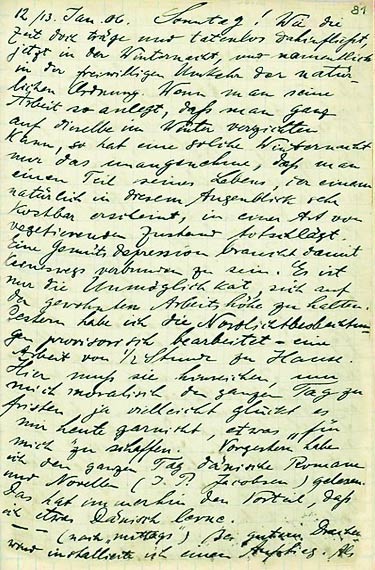 81
12/13. Jan. 06. Sonntag! Wie die
Zeit doch träge und tatenlos dahinfließt,
jetzt in der Winternacht, und namentlich
in der freiwilligen Umkehr der natür-
lichen Ordnung. Wenn man seine
Arbeit so anlegt, daß man ganz
auf dieselbe im Winter verzichten
kann, so hat eine solche Winternacht
nur das unangenehme, daß man
einen Teil seines Lebens, der einem
natürlich in diesem Augenblick sehr
kostbar erscheint, in einer Art von
vegetierenden Zustand totschlägt.
Eine Gemütsdepression braucht damit
keineswegs verbunden zu sein. Es ist
nur die Unmöglichkeit, sich auf
der gewohnten Arbeitshöhe zu halten.
Gestern habe ich die Nordlichtbeobachtun-
gen provisorisch bearbeitet – eine
Arbeit von 1/2 Stunde zu Hause.
Hier muß sie hinreichen, um
mich moralisch den ganzen Tag zu
fristen ja vielleicht glückt es
mir heute garnicht etwas „für
mich“ zu schaffen. Vorgestern habe
ich den ganzen Tag dänische Romane
und Novellen (J. P. Jacobsen) gelesen.
Das hat immerhin den Vorteil, daß
ich etwas Dänisch lerne.
— (nachmittags) Bei gutem Drachen-
wind installierte ich einen Aufstieg. Als